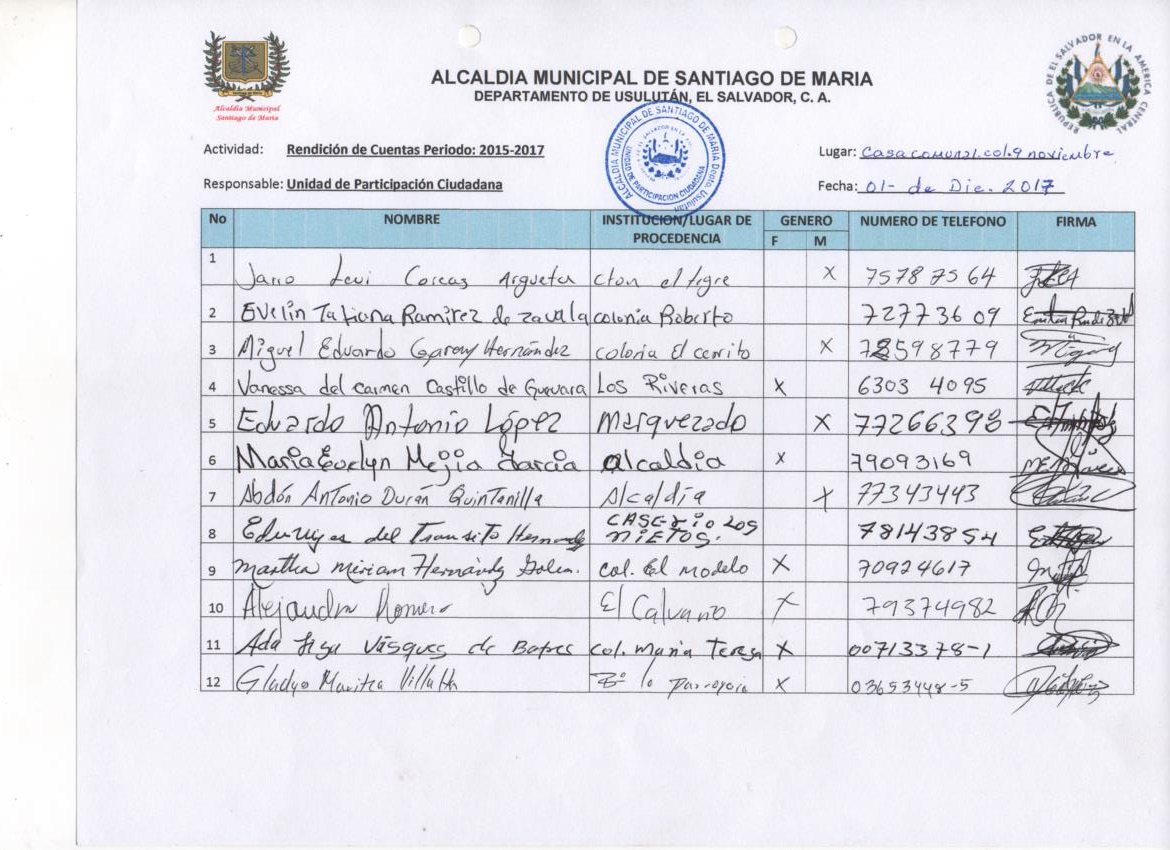 Alcaldia Municipal
Santiago de Maria
ALCALDIA MUNICIPAL DE SANTIAGO DE MARIA
DEPARTAMENTO DE USULUTÁN, EL SALVADOR, C. A.
REPÚBLICA DE EL SALVADOR EN LA AMERICA CENTRAL
ALCALDIA MUNICIPAL DE SANTIAGO DE MARIA Depto. Usulután
UNIDAD DE PARTICIPACION CIUDADANA
Actividad: Rendición de Cuentas Periodo: 2015-2017
Lugar: Casa comunal. col. 9 noviembre
Responsable: Unidad de Participación Ciudadana
Fecha: 01- de Dic. 2017
No NOMBRE INSTITUCION/LUGAR DE PROCEDENCIA GENERO NUMERO DE TELEFONO FIRMA
F M
1 Levi Argueta cton el tigre X 7578 7564
2 Evelin Tatiana Ramirez de zavala colonia Roberto 72773609
3 Miguel Eduardo Hernández colonia El cerrito X 78598779
4 Vanessa del Carmen Castillo de Guevara Los Riveras X 6303 4095
5 Eduardo Antonio López Marquezado X 77266393
6 Maria Evelyn Mejia Garcia alcaldia X 79093169
7 Abdón Antonio Durán Quintanilla Alcaldía X 77343443
8 del Transito CASERIO LOS NIETOS. 78143854
9 Martha Miriam Hernández col. El modelo X 70924617
10 Alejandra Romero El Calvario X 79374982
11 Ada Vásques de col. Maria Teresa X 00713378-1
12 Gladys Maritza Villalta X 03653448-5